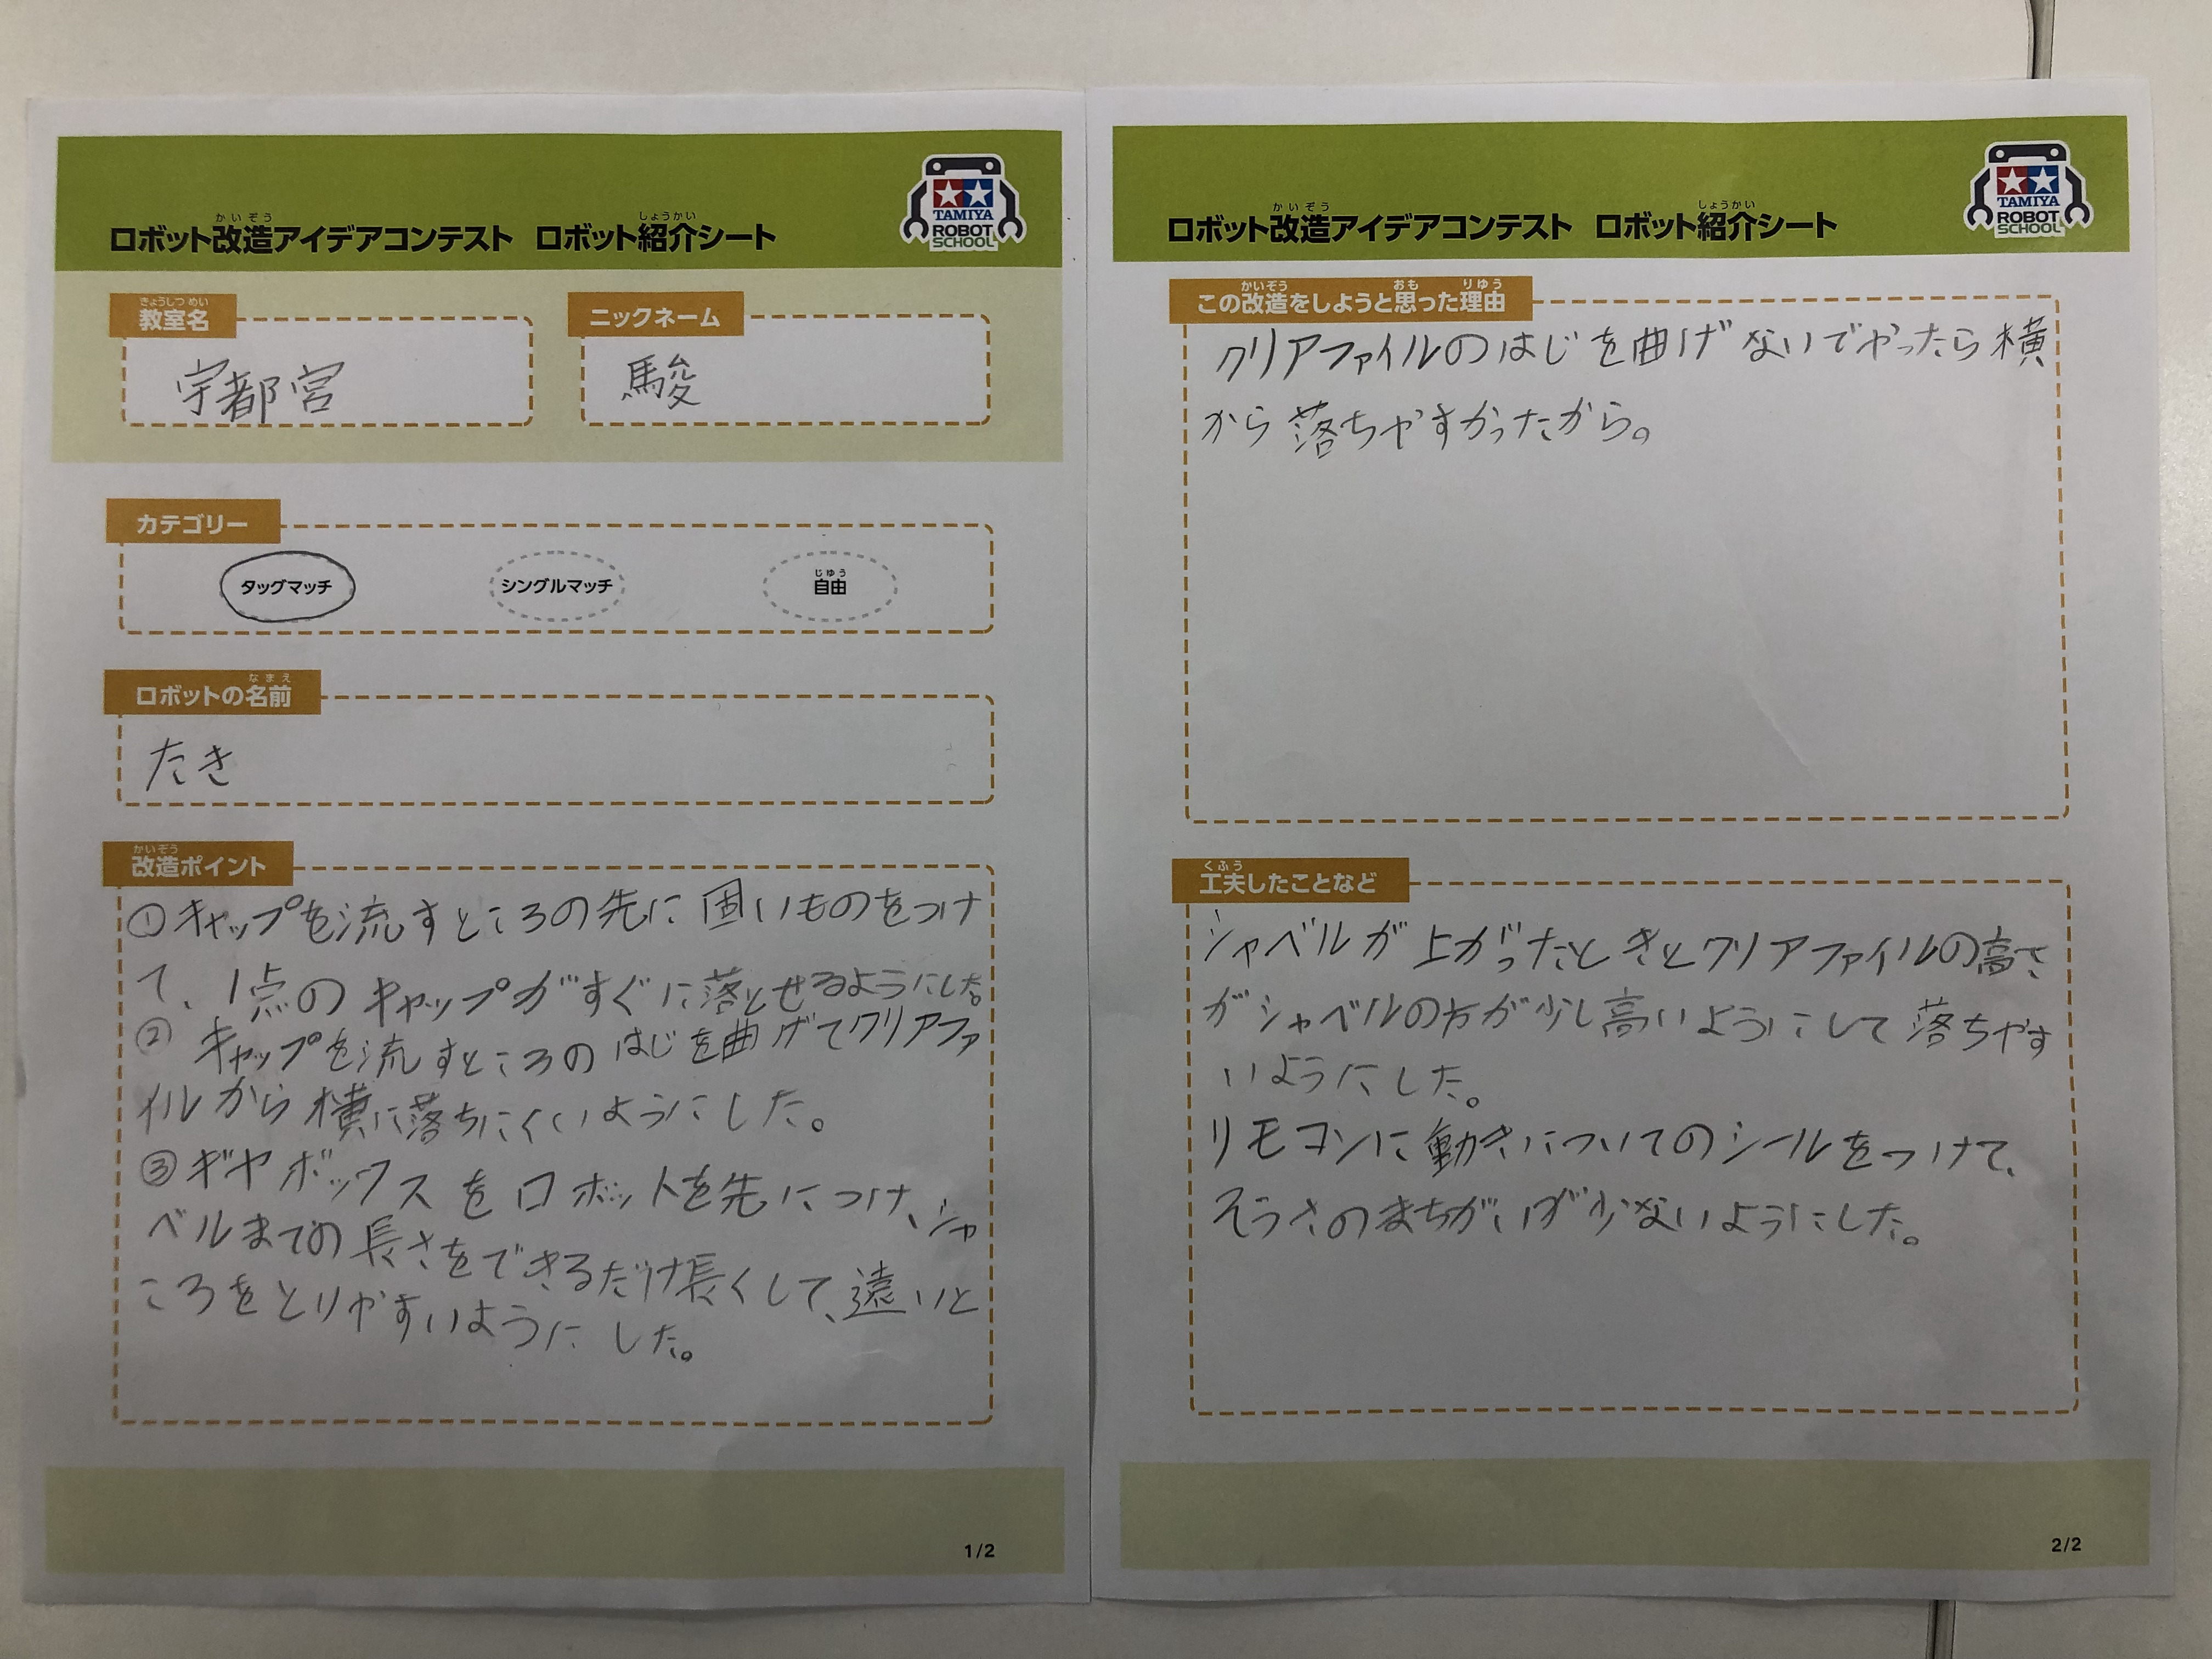 かいぞう しょうかい
ロボット改造アイデアコンテスト ロボット紹介シート
TAMIYA
ROBOT
SCHOOL
きょうしつ めい
教室名
宇都宮
ニックネーム
駿
カテゴリー
タッグマッチ
シングルマッチ
じゆう
自由
なまえ
ロボットの名前
たき
かいぞう
改造ポイント
①キャップを流すところの先に固いものをつけ
て、1点のキャップがすぐに落とせるようにした。
② キャップを流すところのはじを曲げてクリアファ
イルから横に落ちにくいようにした。
③ギヤボックスをロボットを先につけ、シャ
ベルまでの長さをできるだけ長くして、遠いと
ころをとりやすいようにした。
1/2
かいぞう しょうかい
ロボット改造アイデアコンテスト ロボット紹介シート
TAMIYA
ROBOT
SCHOOL
かいぞう おも りゆう
この改造をしようと思った理由
クリアファイルのはじを曲げないでやったら横
から落ちやすかったから。
くふう
工夫したことなど
シャベルが上がったときとクリアファイルの高さ
がシャベルの方が少し高いようにして落ちやす
いようにした。
リモコンに動きについてのシールをつけて、
そうさのまちがいが少ないようにした。
2/2